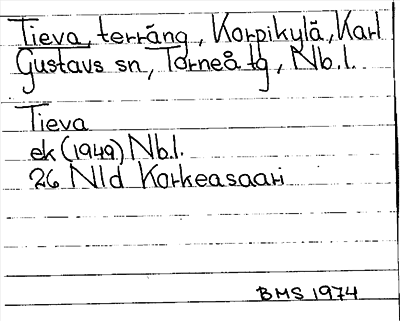 Tieva, terräng, Korpikylä, Karl
Gustavs sn, Torneå tg, Nb.l.
Tieva
ek (1949) Nb.l.
26 Nld Korkeasaari
BMS 1974